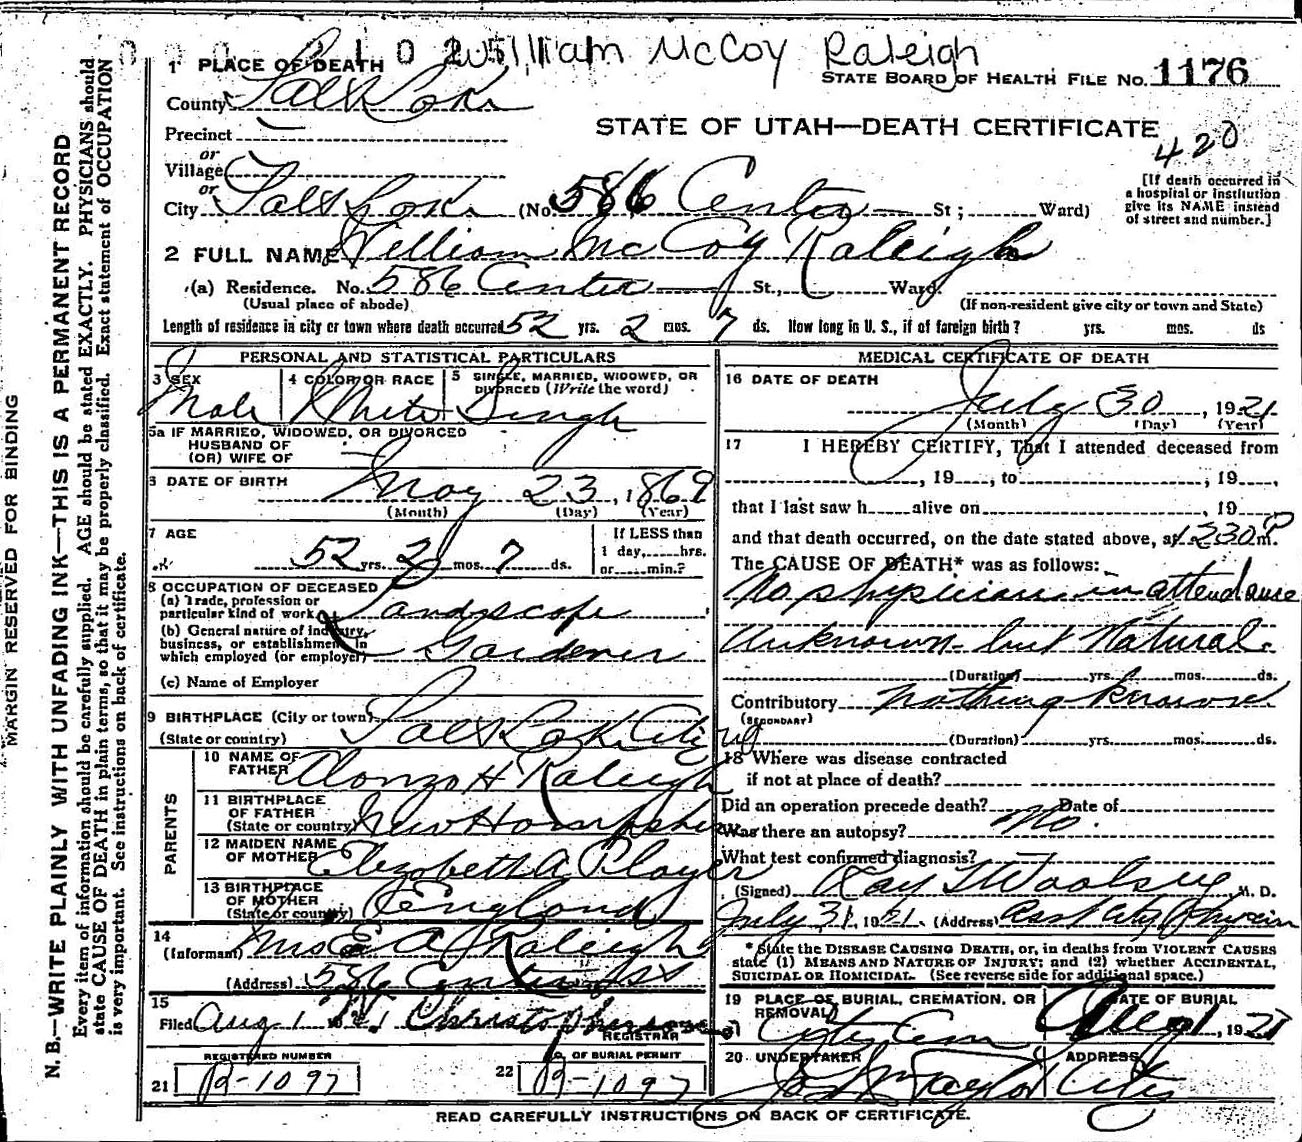 William McCoy Raleigh
1 PLACE OF DEATH
STATE BOARD OF HEALTH FILE NO. 1176
County Salt Lake
STATE OF UTAH—DEATH CERTIFICATE
420
Precinct
or
Village
or
City Salt Lake (No. 586 Center St; Ward)
[If death occurred in
a hospital or institution
give its NAME instead
of street and number.]
2 FULL NAME William McCoy Raleigh
(a) Residence. No. 586 Center St., Ward,
(Usual place of abode) (If non-resident give city or town and State)
Length of residence in city or town where death occurred 52 yrs. 2 mos. 7 ds. How long in U. S., if of foreign birth? yrs. mos. ds
PERSONAL AND STATISTICAL PARTICULARS
3 SEX
Male
4 COLOR OR RACE
White
5 SINGLE, MARRIED, WIDOWED, OR
DIVORCED (Write the word)
Single
5a IF MARRIED, WIDOWED, OR DIVORCED
HUSBAND OF
(OR) WIFE OF
6 DATE OF BIRTH
May 23, 1869
(Month) (Day) (Year)
7 AGE
52 yrs. 2 mos. 7 ds.
If LESS than
1 day, hrs.
or min.?
8 OCCUPATION OF DECEASED
(a) Trade, profession or
particular kind of work Landscape
(b) General nature of industry,
business, or establishment in
which employed (or employer) Gardener
(c) Name of Employer
9 BIRTHPLACE (City or town)
(State or country) Salt Lake City
PARENTS
10 NAME OF
FATHER Alonzo H Raleigh
11 BIRTHPLACE
OF FATHER
(State or country) New Hampshire
12 MAIDEN NAME
OF MOTHER Elizabeth A Player
13 BIRTHPLACE
OF MOTHER
(State or country) England
14
(Informant) Mrs E A Raleigh
(Address) 586 Center St
15
Filed Aug 1 1921
REGISTRAR
REGISTERED NUMBER
21 B-1097
NO. OF BURIAL PERMIT
22 B-1097
MEDICAL CERTIFICATE OF DEATH
16 DATE OF DEATH
July 30, 1921
(Month) (Day) (Year)
17 I HEREBY CERTIFY, That I attended deceased from
, 19 , to , 19 ,
that I last saw h alive on , 19
and that death occurred, on the date stated above, at 1230 P m.
The CAUSE OF DEATH* was as follows:
No physician in attendance
Unknown but Natural.
(Duration) yrs. mos. ds.
Contributory Nothing Known
(SECONDARY)
(Duration) yrs. mos. ds.
18 Where was disease contracted
if not at place of death?
Did an operation precede death? No. Date of
Was there an autopsy?
What test confirmed diagnosis?
(Signed) Ray T Woolsey M. D.
July 31, 1921. (Address) Asst City Physician
* State the DISEASE CAUSING DEATH, or, in deaths from VIOLENT CAUSES
state (1) MEANS AND NATURE OF INJURY; and (2) whether ACCIDENTAL,
SUICIDAL OR HOMICIDAL. (See reverse side for additional space.)
19 PLACE OF BURIAL, CREMATION, OR
REMOVAL
City Cem
DATE OF BURIAL
Aug 1, 1921
20 UNDERTAKER
Taylor
ADDRESS
City
READ CAREFULLY INSTRUCTIONS ON BACK OF CERTIFICATE.
MARGIN RESERVED FOR BINDING
N. B.—WRITE PLAINLY WITH UNFADING INK—THIS IS A PERMANENT RECORD
Every item of information should be carefully supplied. AGE should be stated EXACTLY. PHYSICIANS should
state CAUSE OF DEATH in plain terms, so that it may be properly classified. Exact statement of OCCUPATION
is very important. See instructions on back of certificate.